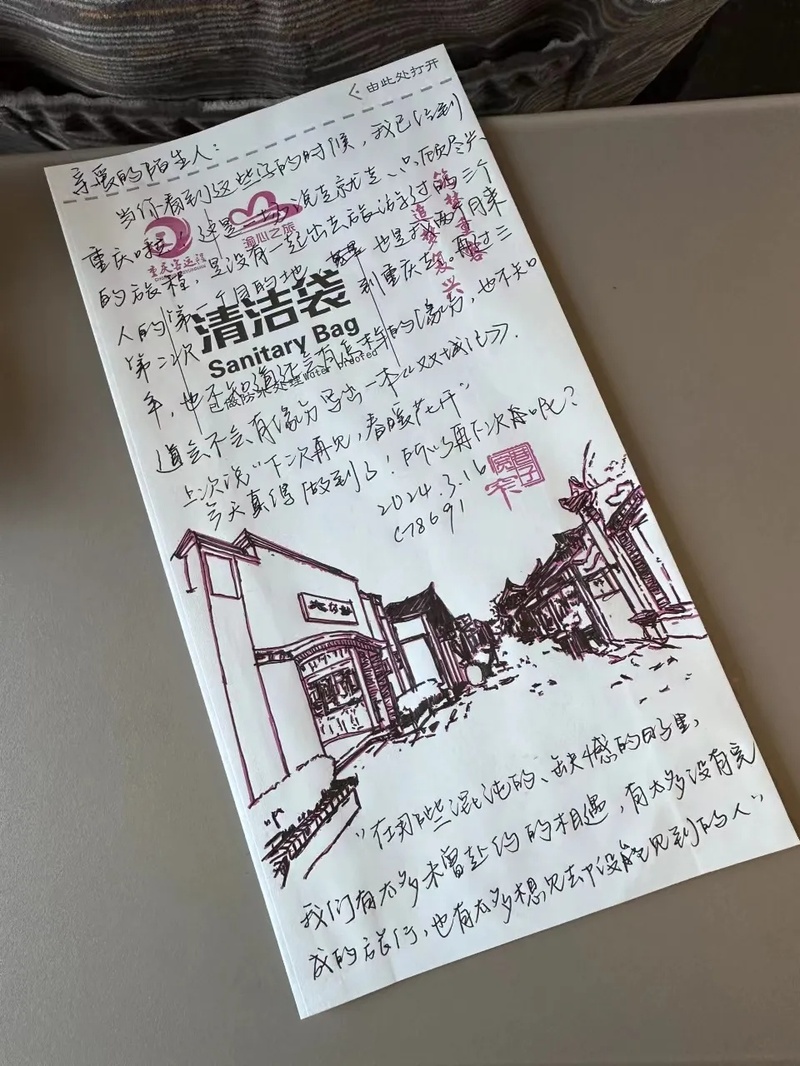 由此处打开
亲爱的陌生人：
当你看到这些字的时候，我已经到
重庆啦！这是一场说走就走、只顾尽兴
的旅程，是没有一起出去旅游过的三个
人的第一个目的地，也是我两个月来
第二次到重庆去。再过三
年，也不知道还会有怎样的缘分，也不知
道会不会有缘分写出一本《双城记》。
上次说“下次再见，春暖花开”
今天真得做到了！所以再下次呢？
2024.3.16
C78691
重庆客运段
渝心之旅
清洁袋
Sanitary Bag
已做防水处理 Water proofed
追梦复兴
“在那些混沌的、缺憾的日子里，
我们有太多未曾赴约的相遇，有太多没有完
成的旅行，也有太多想见去中没能见到的人”